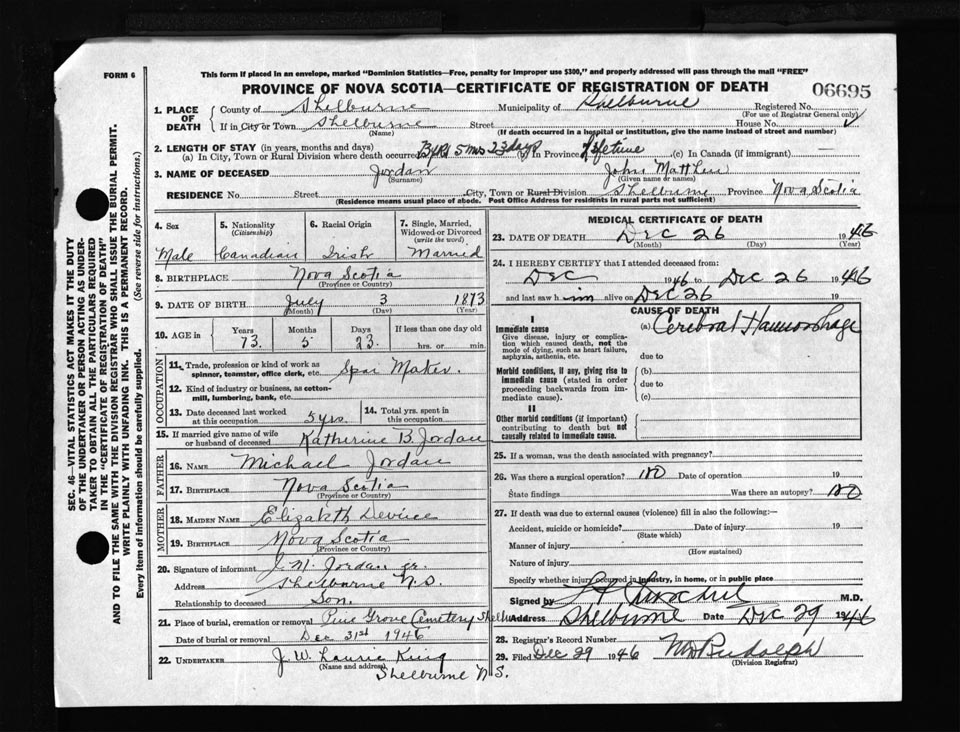 FORM 6
This form if placed in an envelope, marked "Dominion Statistics—Free, penalty for improper use $300," and properly addressed will pass through the mail "FREE"
PROVINCE OF NOVA SCOTIA—CERTIFICATE OF REGISTRATION OF DEATH
06695
SEC. 46—VITAL STATISTICS ACT MAKES IT THE DUTY
OF THE UNDERTAKER OR PERSON ACTING AS UNDER-
TAKER TO OBTAIN ALL THE PARTICULARS REQUIRED
IN THE "CERTIFICATE OF REGISTRATION OF DEATH"
AND TO FILE THE SAME WITH THE DIVISION REGISTRAR WHO SHALL ISSUE THE BURIAL PERMIT.
WRITE PLAINLY WITH UNFADING INK. THIS IS A PERMANENT RECORD.
Every item of information should be carefully supplied. (See reverse side for instructions.)
1. PLACE OF DEATH
County of Shelburne Municipality of Shelburne Registered No.
(For use of Registrar General only)
If in City or Town Shelburne Street House No.
(Name) (If death occurred in a hospital or institution, give the name instead of street and number)
2. LENGTH OF STAY (in years, months and days)
(a) In City, Town or Rural Division where death occurred 5 mos 23 days (b) In Province Lifetime (c) In Canada (if immigrant)
3. NAME OF DECEASED Jordan John Matthew
(Surname) (Given name or names)
RESIDENCE No. Street City, Town or Rural Division Shelburne Province Nova Scotia
(Residence means usual place of abode. Post Office Address for residents in rural parts not sufficient)
4. Sex 5. Nationality (Citizenship) 6. Racial Origin 7. Single, Married, Widowed or Divorced (write the word)
Male Canadian Irish Married
8. BIRTHPLACE Nova Scotia
(Province or Country)
9. DATE OF BIRTH July 3 1873
(Month) (Day) (Year)
10. AGE in Years Months Days If less than one day old
73 5 23 hrs. or min.
OCCUPATION
11. Trade, profession or kind of work as spinner, teamster, office clerk, etc. Spar Maker.
12. Kind of industry or business, as cotton-mill, lumbering, bank, etc.
13. Date deceased last worked at this occupation 5 yrs. 14. Total yrs. spent in this occupation
15. If married give name of wife or husband of deceased Katherine B. Jordan
FATHER
16. NAME Michael Jordan
17. BIRTHPLACE Nova Scotia
(Province or Country)
MOTHER
18. MAIDEN NAME Elizabeth
19. BIRTHPLACE Nova Scotia
(Province or Country)
20. Signature of informant J. M. Jordan jr.
Address Shelburne N.S.
Relationship to deceased Son.
21. Place of burial, cremation or removal Pine Grove Cemetery
Date of burial or removal Dec 31st 1946
22. UNDERTAKER J. W. Laurie King
(Name and address) Shelburne N.S.
MEDICAL CERTIFICATE OF DEATH
23. DATE OF DEATH Dec 26 1946
(Month) (Day) (Year)
24. I HEREBY CERTIFY that I attended deceased from:
Dec 1946 to Dec 26 1946
and last saw h im alive on Dec 26 19
CAUSE OF DEATH
I
Immediate cause
Give disease, injury or complica-
tion which caused death, not the
mode of dying, such as heart failure,
asphyxia, asthenia, etc.
(a) Cerebral Haemorrhage
due to
Morbid conditions, if any, giving rise to
immediate cause (stated in order
proceeding backwards from im-
mediate cause).
(b)
due to
(c)
II
Other morbid conditions (if important)
contributing to death but not
causally related to immediate cause.
25. If a woman, was the death associated with pregnancy?
26. Was there a surgical operation? no Date of operation 19
State findings Was there an autopsy? no
27. If death was due to external causes (violence) fill in also the following:—
Accident, suicide or homicide? Date of injury 19
(State which)
Manner of injury
(How sustained)
Nature of injury
Specify whether injury occurred in industry, in home, or in public place
Signed by M.D.
Address Shelburne Date Dec 29 1946
28. Registrar's Record Number
29. Filed Dec 29 1946 Rudolph
(Division Registrar)